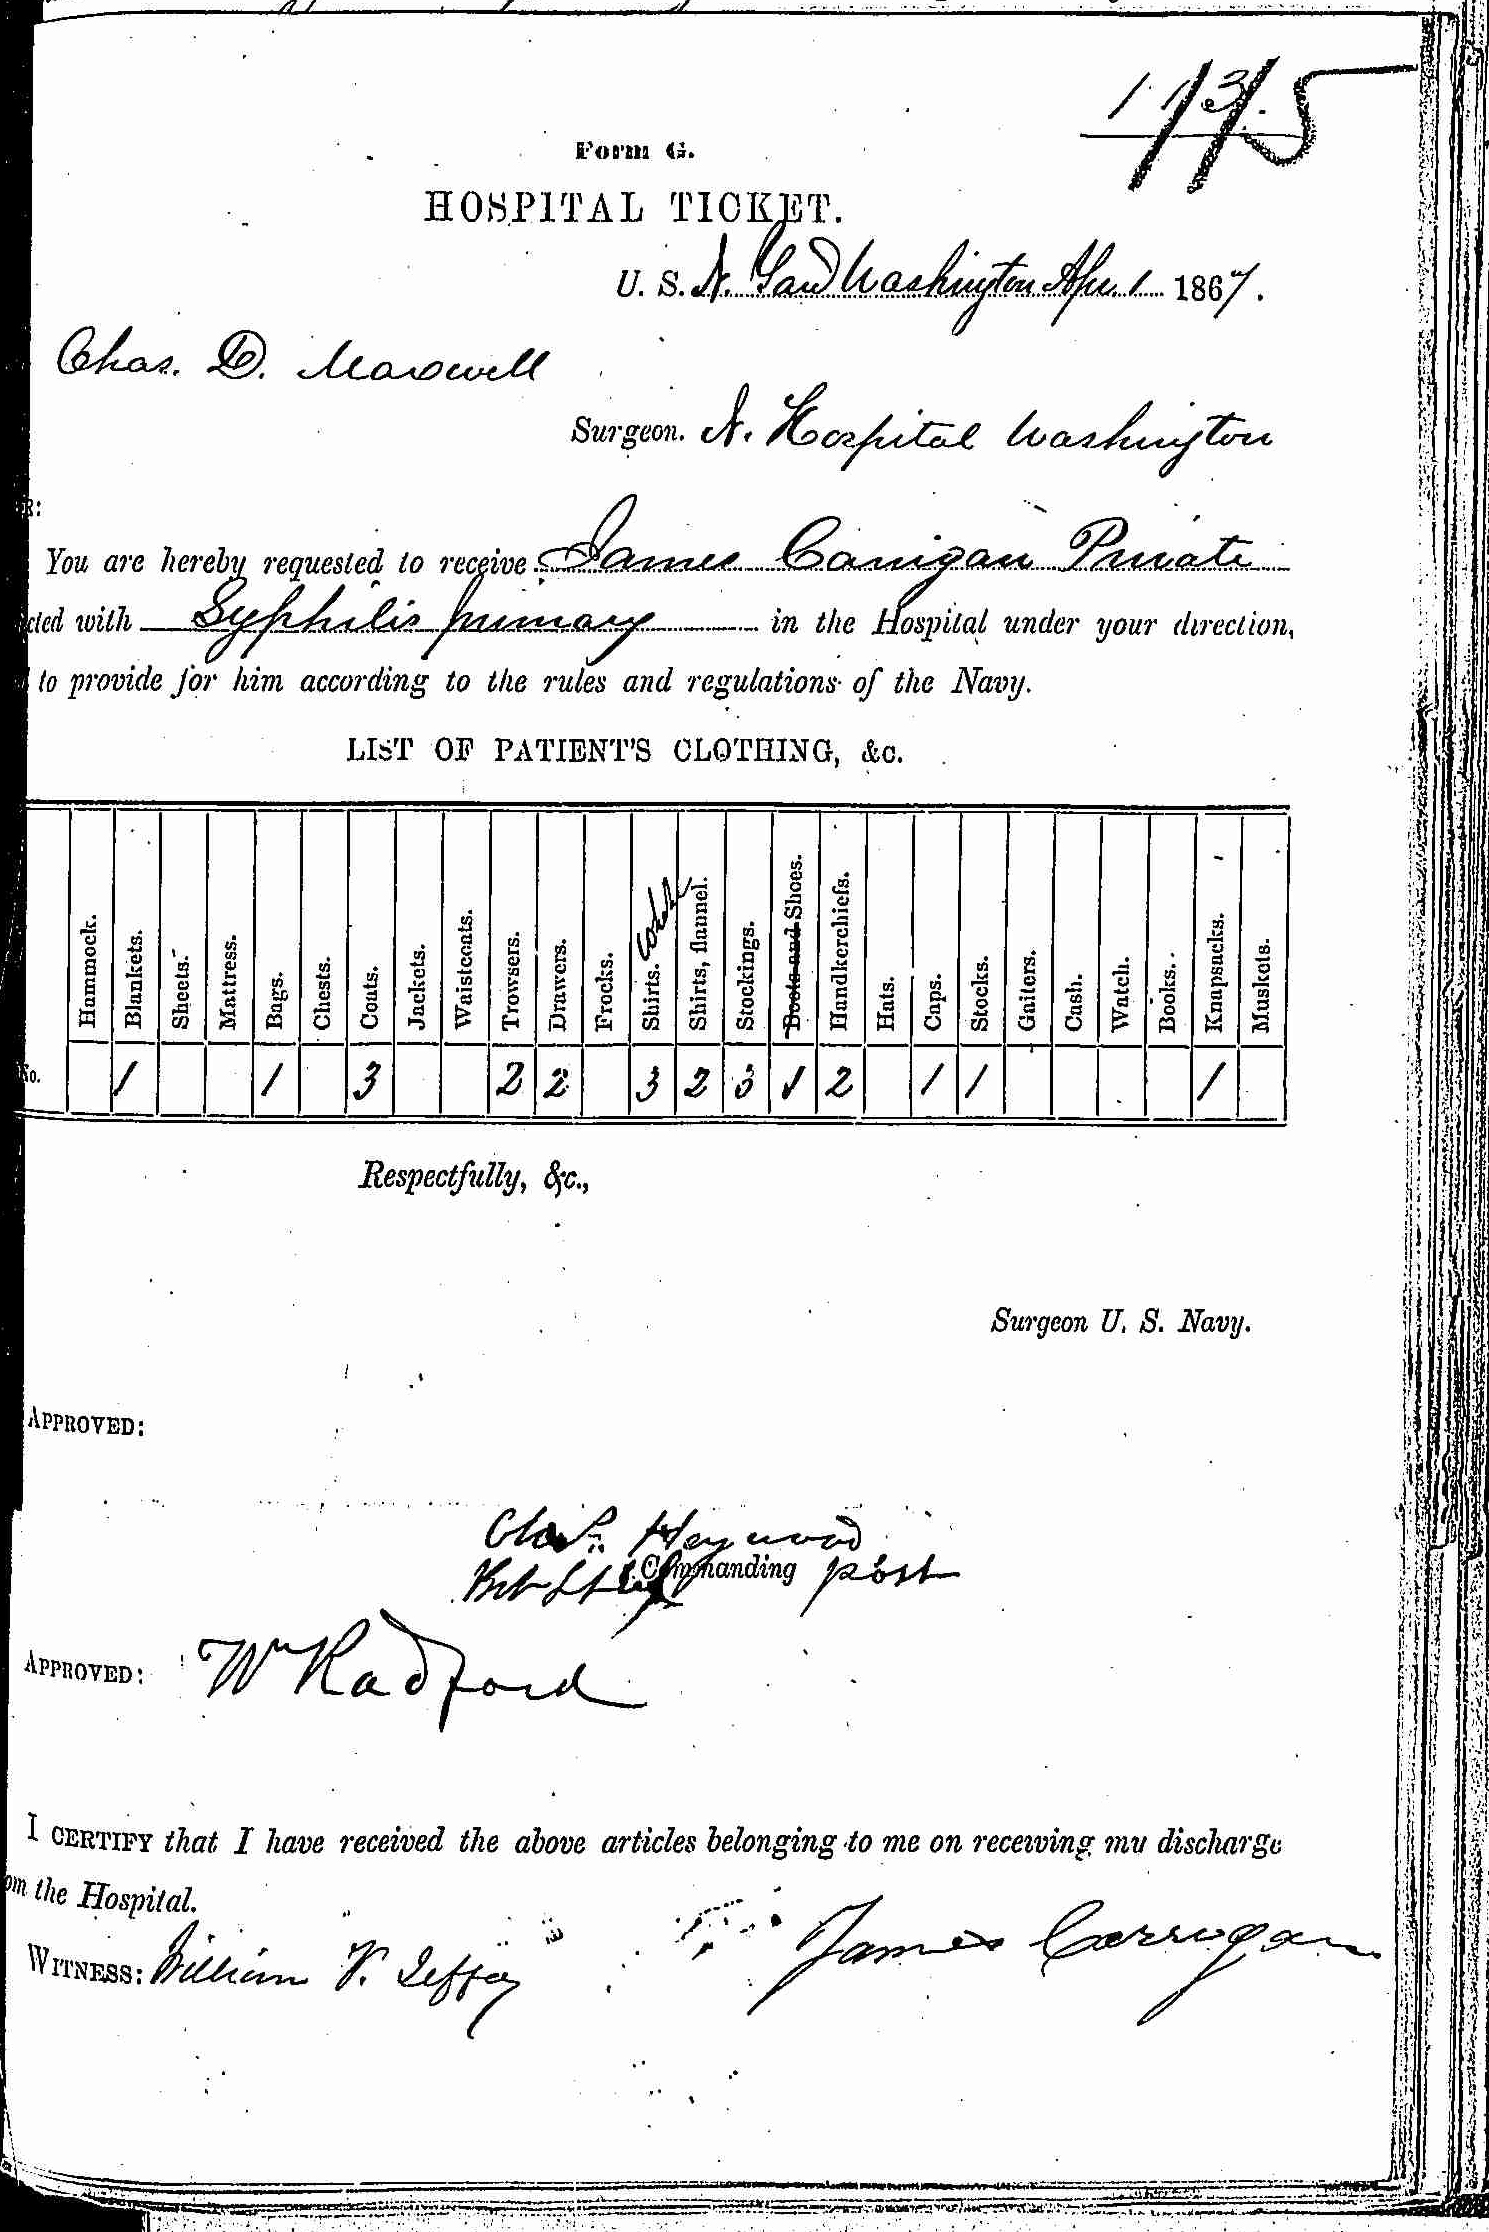 175
Form G.
HOSPITAL TICKET.
U. S. N. Yard Washington Apr. 1 1867.
Chas. D. Maxwell
Surgeon. N. Hospital Washington
R:
You are hereby requested to receive James Carrigan Private
cted with Syphilis primary in the Hospital under your direction,
to provide for him according to the rules and regulations of the Navy.
LIST OF PATIENT'S CLOTHING, &c.
Hammock. Blankets. Sheets. Mattress. Bags. Chests. Coats. Jackets. Waistcoats. Trowsers. Drawers. Frocks. Shirts. Shirts, flannel. Stockings. Boots and Shoes. Handkerchiefs. Hats. Caps. Stocks. Gaiters. Cash. Watch. Books. Knapsacks. Muskets.
No. 1 1 3 2 2 3 2 3 1 2 1 1 1
Respectfully, &c.,
Surgeon U. S. Navy.
APPROVED:
Chas. Heywood
Commanding post
APPROVED: Wm Radford
I CERTIFY that I have received the above articles belonging to me on receiving my discharge
om the Hospital.
James Carrigan
WITNESS: William V.